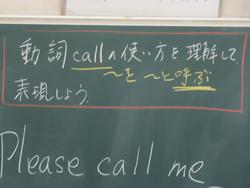 動詞callの使い方を理解して
～を ～と呼ぶ
表現しよう.
Please call me